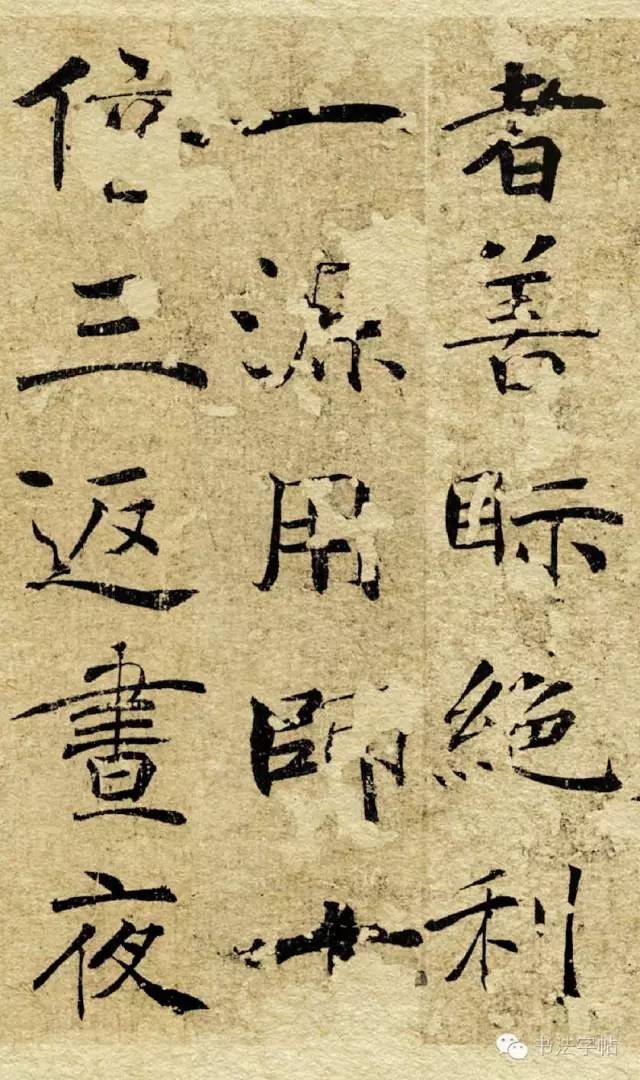 者善眎絕利
一源用師十
倍三返晝夜
书法字帖